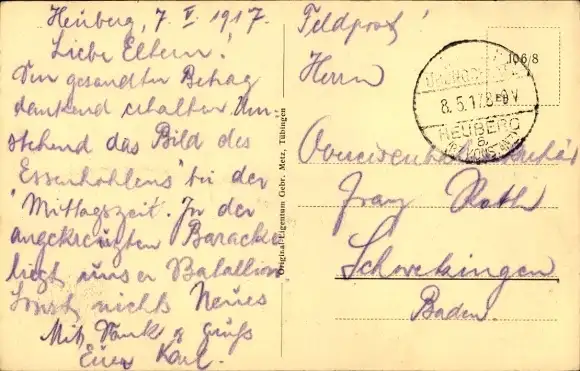 Heuberg, 7. V. 1917.
Liebe Eltern!
Den gesandten Betrag
dankend erhalten. Um-
stehend das Bild des
"Essenhohlens" bei der
Mittagszeit. In der
angekreuzten Baracke
liegt unser Batallion
Sonst nichts Neues
Mit Dank & Gruß
Euer Karl.
Original-Eigentum Gebr. Metz, Tübingen
Feldpost!
Herrn
Franz Roth
Schwetzingen
Baden.
106/8
8.5.17.8-9V
HEUBERG